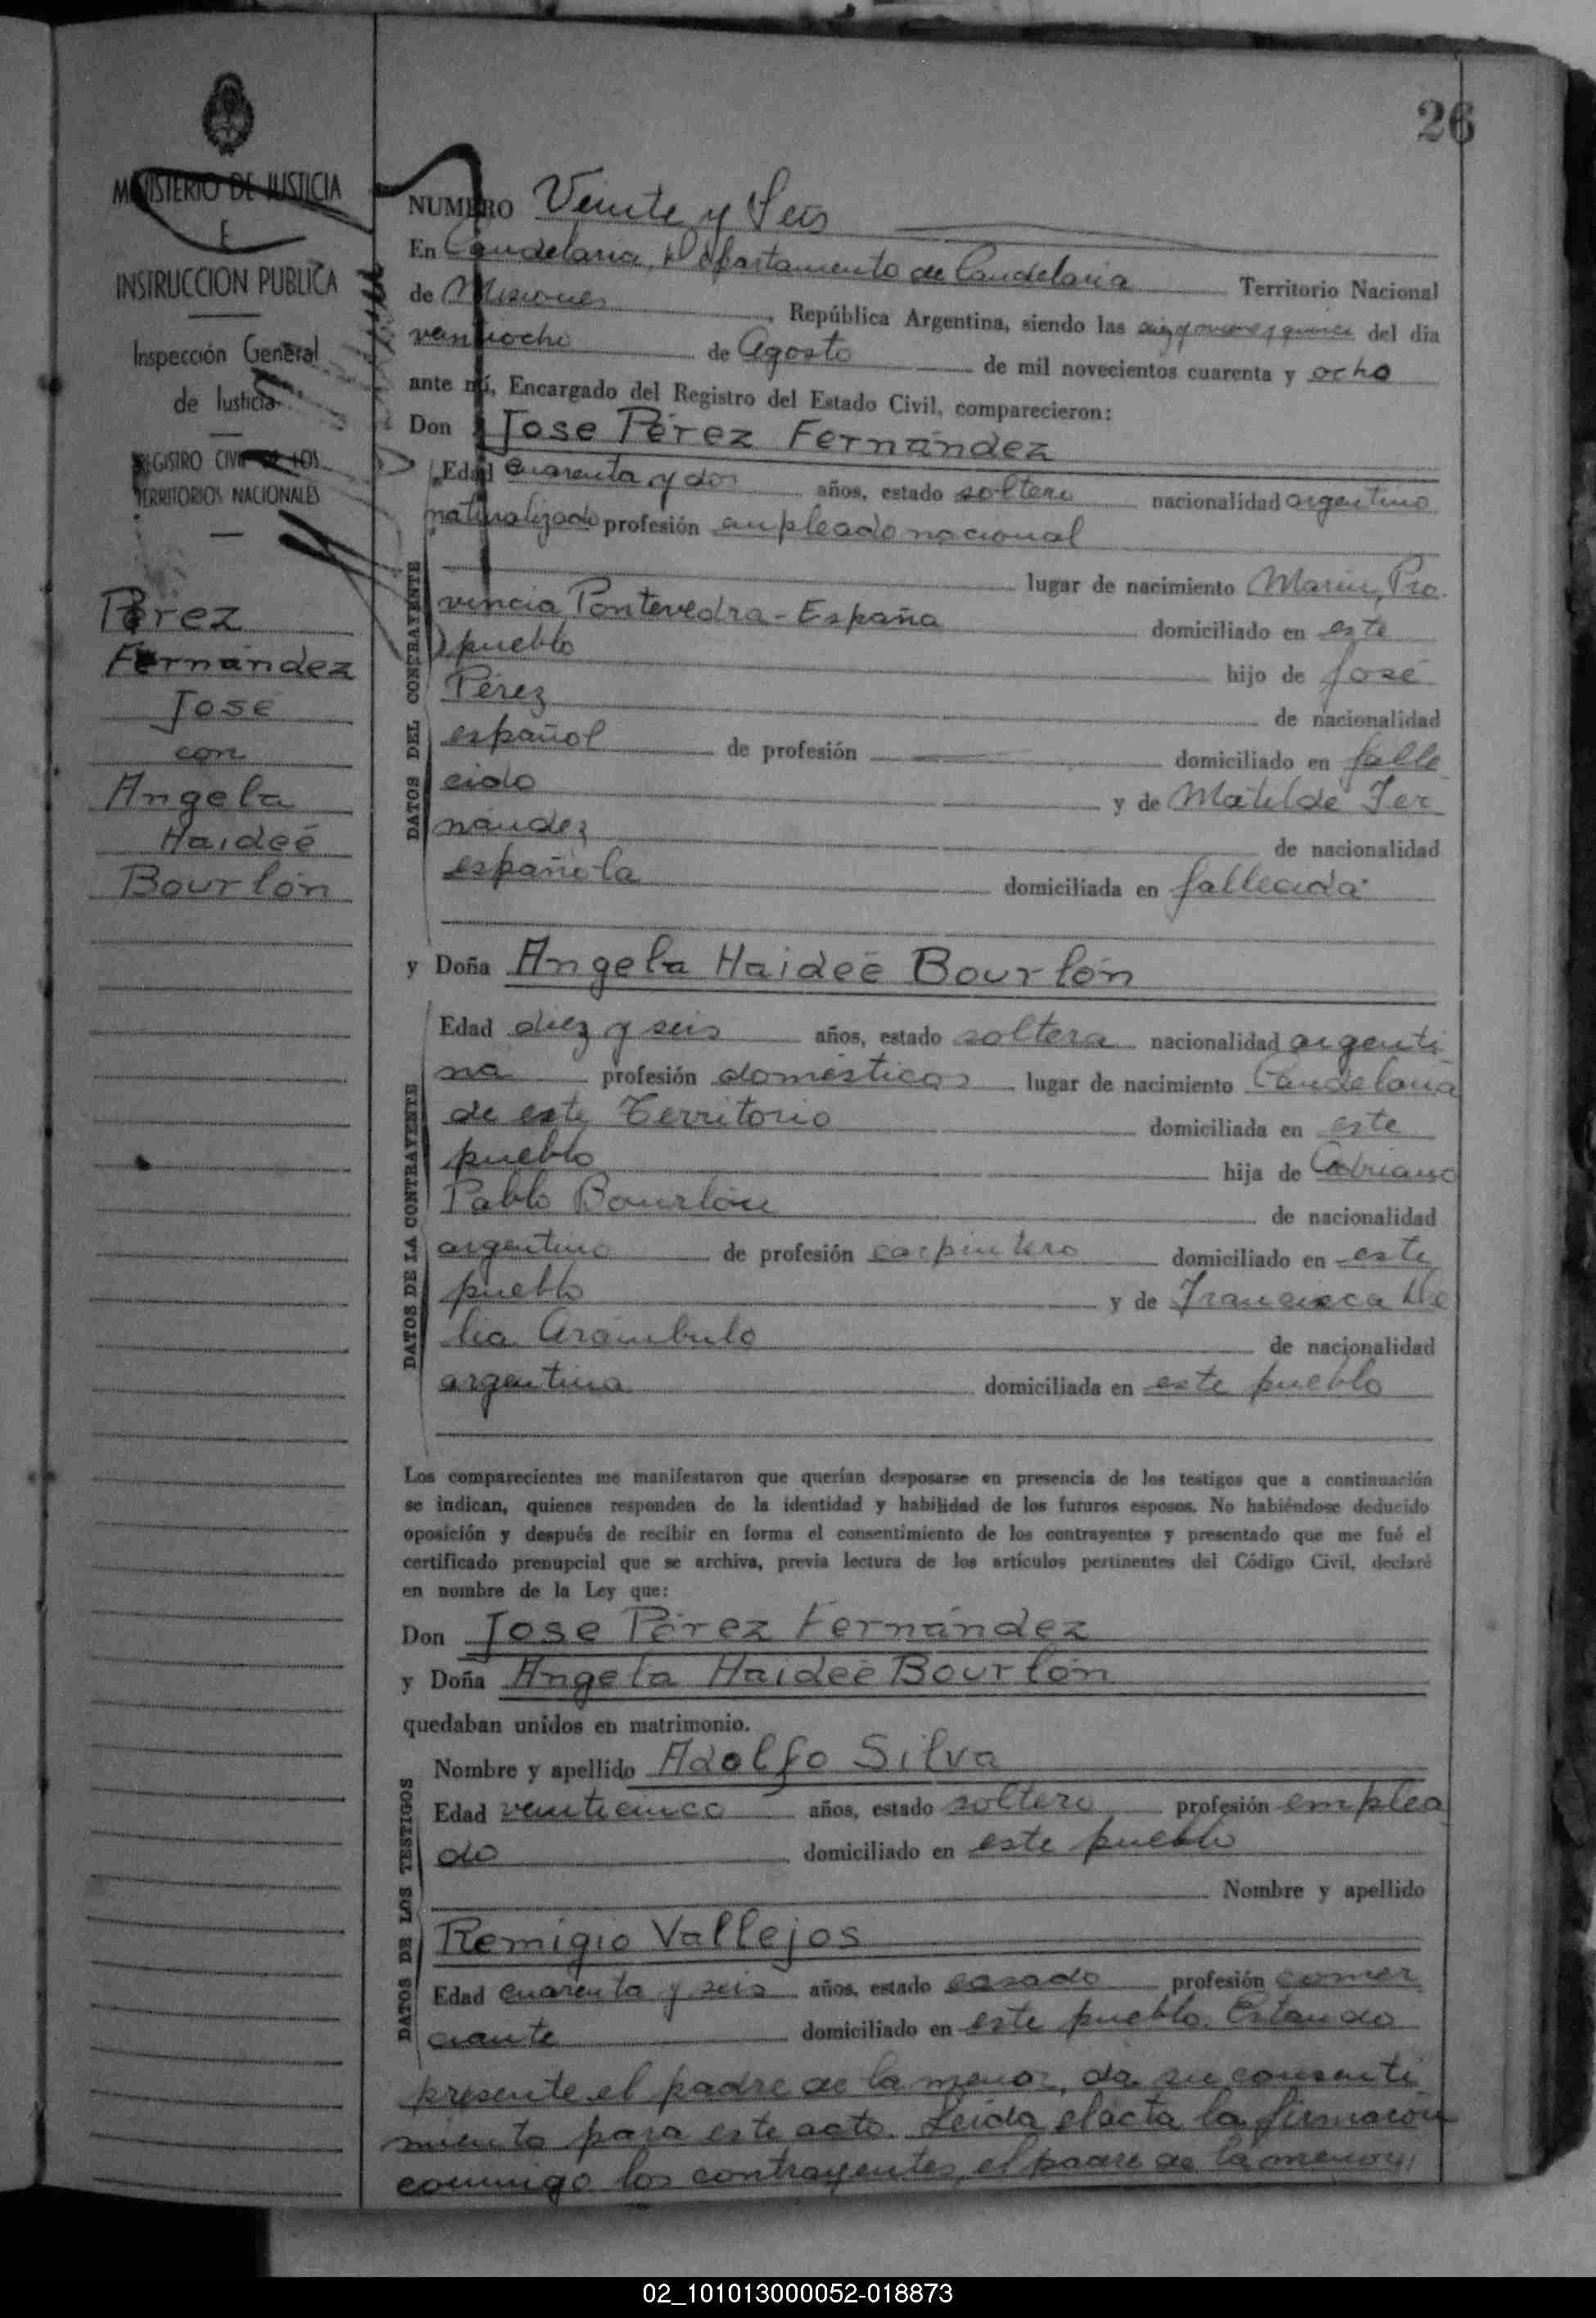 26
MINISTERIO DE JUSTICIA
E
INSTRUCCION PUBLICA
Inspección General
de Justicia
REGISTRO CIVIL DE LOS
TERRITORIOS NACIONALES
Pérez
Fernández
José
con
Angela
Haideé
Bourlón
NUMERO Veinte y Seis
En Candelaria, Departamento de Candelaria Territorio Nacional
de Misiones, República Argentina, siendo las diez y quince del día
ventiocho de Agosto de mil novecientos cuarenta y ocho
ante mí, Encargado del Registro del Estado Civil, comparecieron:
Don José Pérez Fernández
DATOS DEL CONTRAYENTE
Edad cuarenta y dos años, estado soltero nacionalidad argentino
naturalizado profesión empleado nacional
lugar de nacimiento Marin, Pro
vincia Pontevedra - España domiciliado en este
pueblo hijo de José
Pérez de nacionalidad
español de profesión — domiciliado en falle
cido y de Matilde Fer
nández de nacionalidad
española domiciliada en fallecida
y Doña Angela Haideé Bourlón
DATOS DE LA CONTRAYENTE
Edad diez y seis años, estado soltera nacionalidad argenti
na profesión domésticos lugar de nacimiento Candelaria
de este Territorio domiciliada en este
pueblo hija de Adriano
Pablo Bourlón de nacionalidad
argentino de profesión carpintero domiciliado en este
pueblo y de Francisca De
lia Arámbulo de nacionalidad
argentina domiciliada en este pueblo
Los comparecientes me manifestaron que querían desposarse en presencia de los testigos que a continuación
se indican, quienes responden de la identidad y habilidad de los futuros esposos. No habiéndose deducido
oposición y después de recibir en forma el consentimiento de los contrayentes y presentado que me fué el
certificado prenupcial que se archiva, previa lectura de los artículos pertinentes del Código Civil, declaré
en nombre de la Ley que:
Don José Pérez Fernández
y Doña Angela Haideé Bourlón
quedaban unidos en matrimonio.
DATOS DE LOS TESTIGOS
Nombre y apellido Adolfo Silva
Edad veinticinco años, estado soltero profesión emplea
do domiciliado en este pueblo
Nombre y apellido
Remigio Vallejos
Edad cuarenta y seis años, estado casado profesión comer
ciante domiciliado en este pueblo. Estando
presente el padre de la menor, da su consenti
miento para este acto. Leida el acta la firmaron
conmigo los contrayentes, el padre de la menor y
02_101013000052-018873